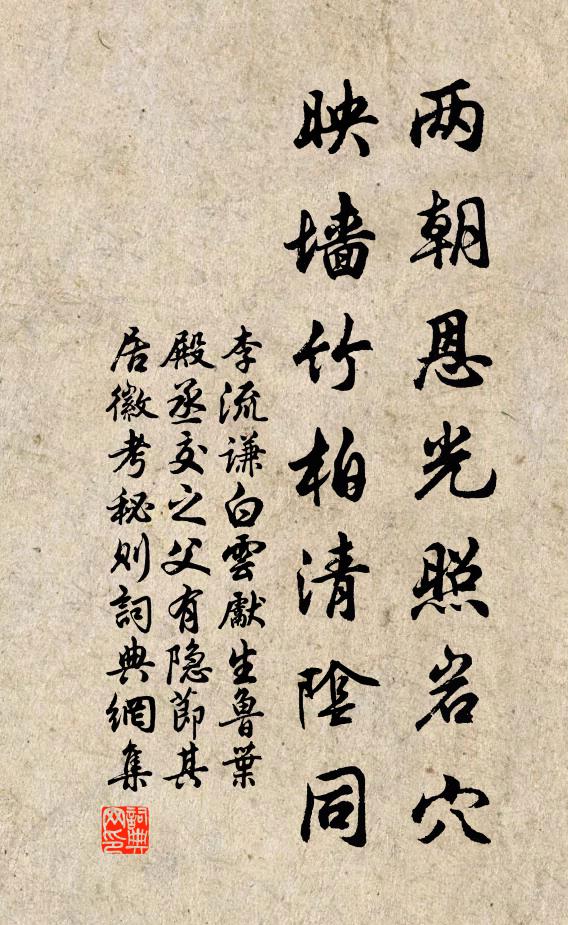 两朝恩光照岩穴
映墙竹柏清阴同
李流谦白雲獻生鲁葉
殿丞交之父有隐節其
居徽考秘则詞典網集
詞典網印